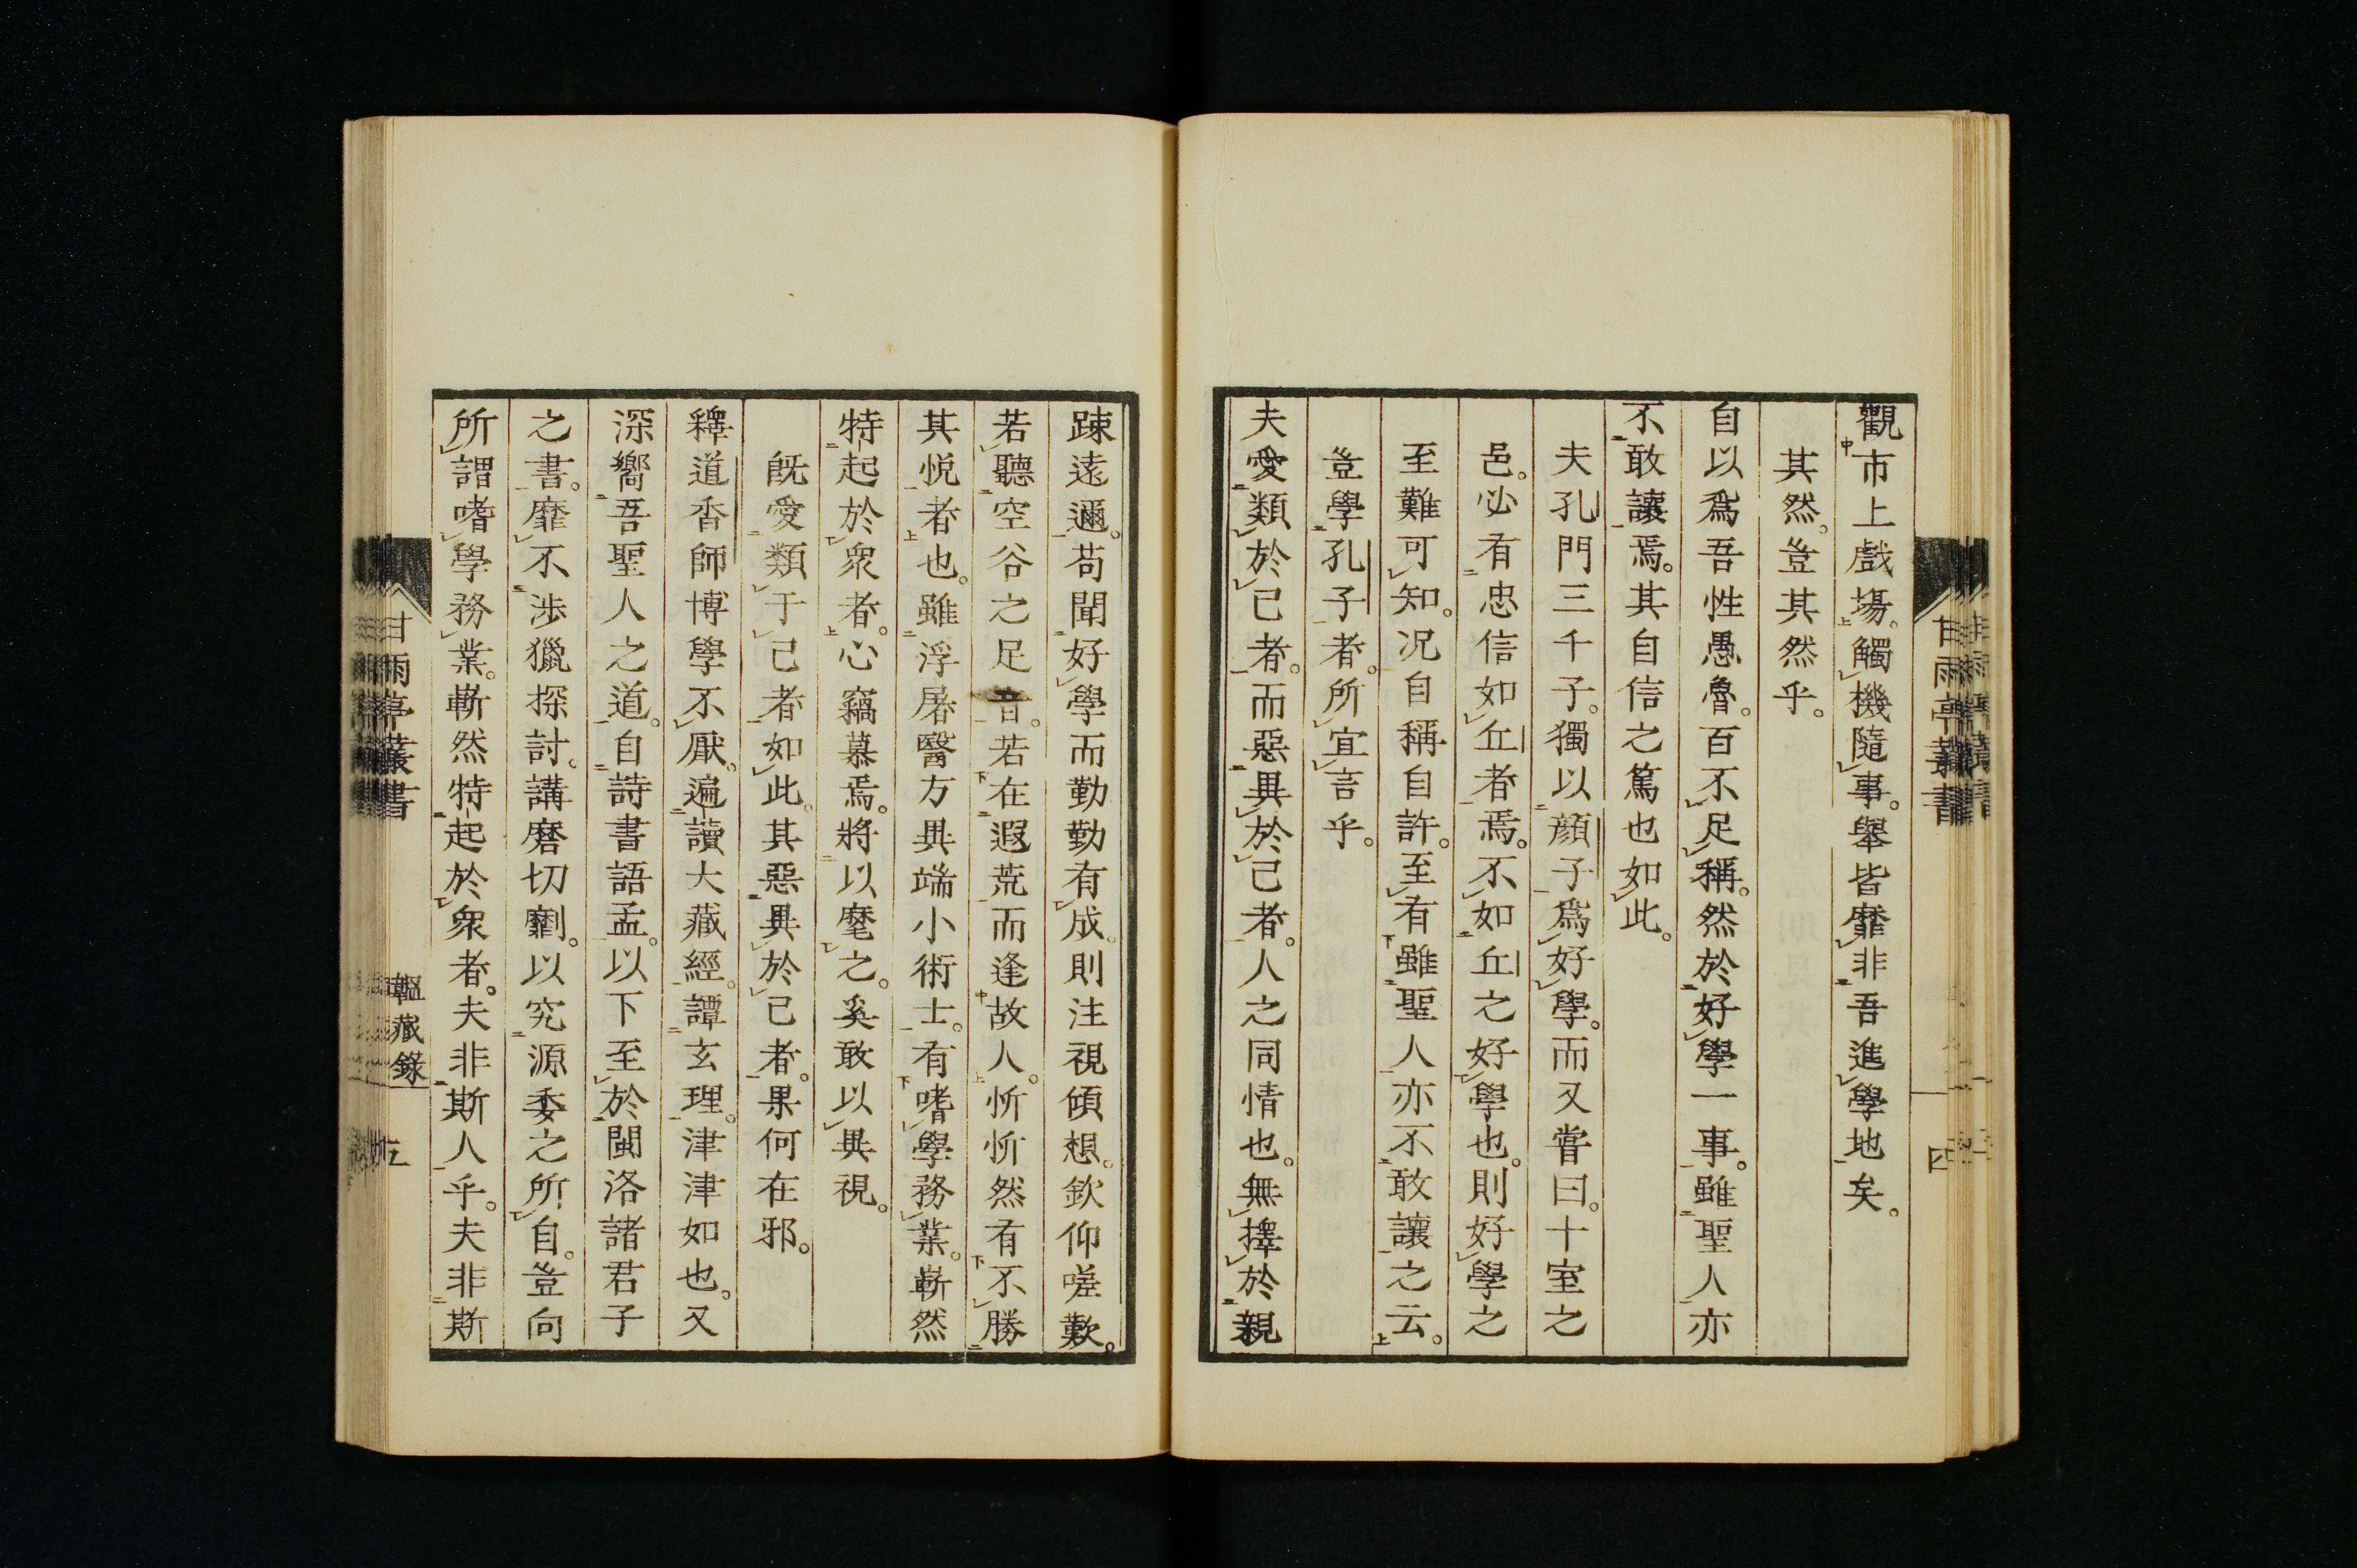 觀市上戲場。觸機隨事。舉皆靡非吾進學地矣。
其然。豈其然乎。
自以爲吾性愚魯。百不足稱。然於好學一事。雖聖人亦
不敢讓焉。其自信之篤也如此。
夫孔門三千子。獨以顏子爲好學。而又嘗曰。十室之
邑。必有忠信如丘者焉。不如丘之好學也。則好學之
至難可知。况自稱自許。至有雖聖人亦不敢讓之云。
豈學孔子者。所宜言乎。
夫愛類於己者。而惡異於己者。人之同情也。無擇於親
疎遠邇。苟聞好學而勤勤有成。則注視傾想。欽仰嗟歎。
若聽空谷之足音。若在遐荒而逢故人。忻忻然有不勝
其悅者也。雖浮屠醫方異端小術士。有嗜學務業。嶄然
特起於衆者。心竊慕焉。將以麾之。奚敢以異視。
旣愛類于己者如此。其惡異於己者。果何在邪。
釋道香師博學不厭。遍讀大藏經。譚玄理。津津如也。又
深嚮吾聖人之道。自詩書語孟。以下至於閩洛諸君子
之書。靡不涉獵探討。講磨切劘。以究源委之所自。豈向
所謂嗜學務業。嶄然特起於衆者。夫非斯人乎。夫非斯
甘雨亭叢書
韞藏錄
五
甘雨亭叢書
四